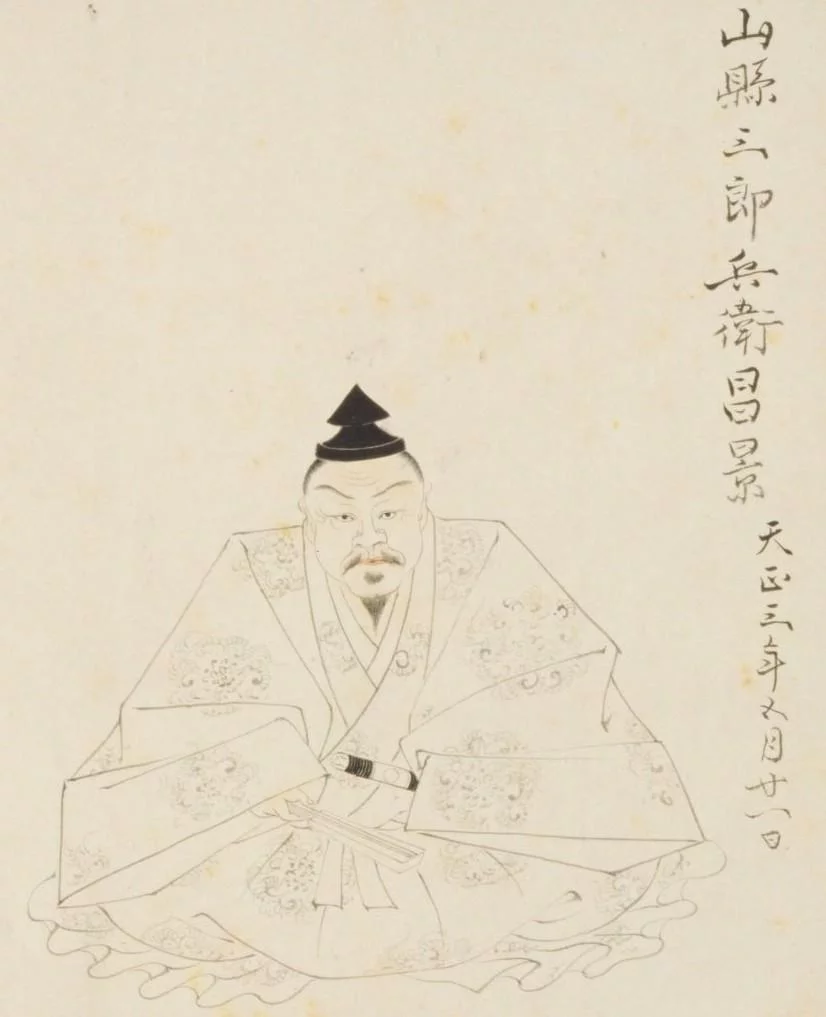 山縣三郎兵衛昌景
天正三年五月廿一日